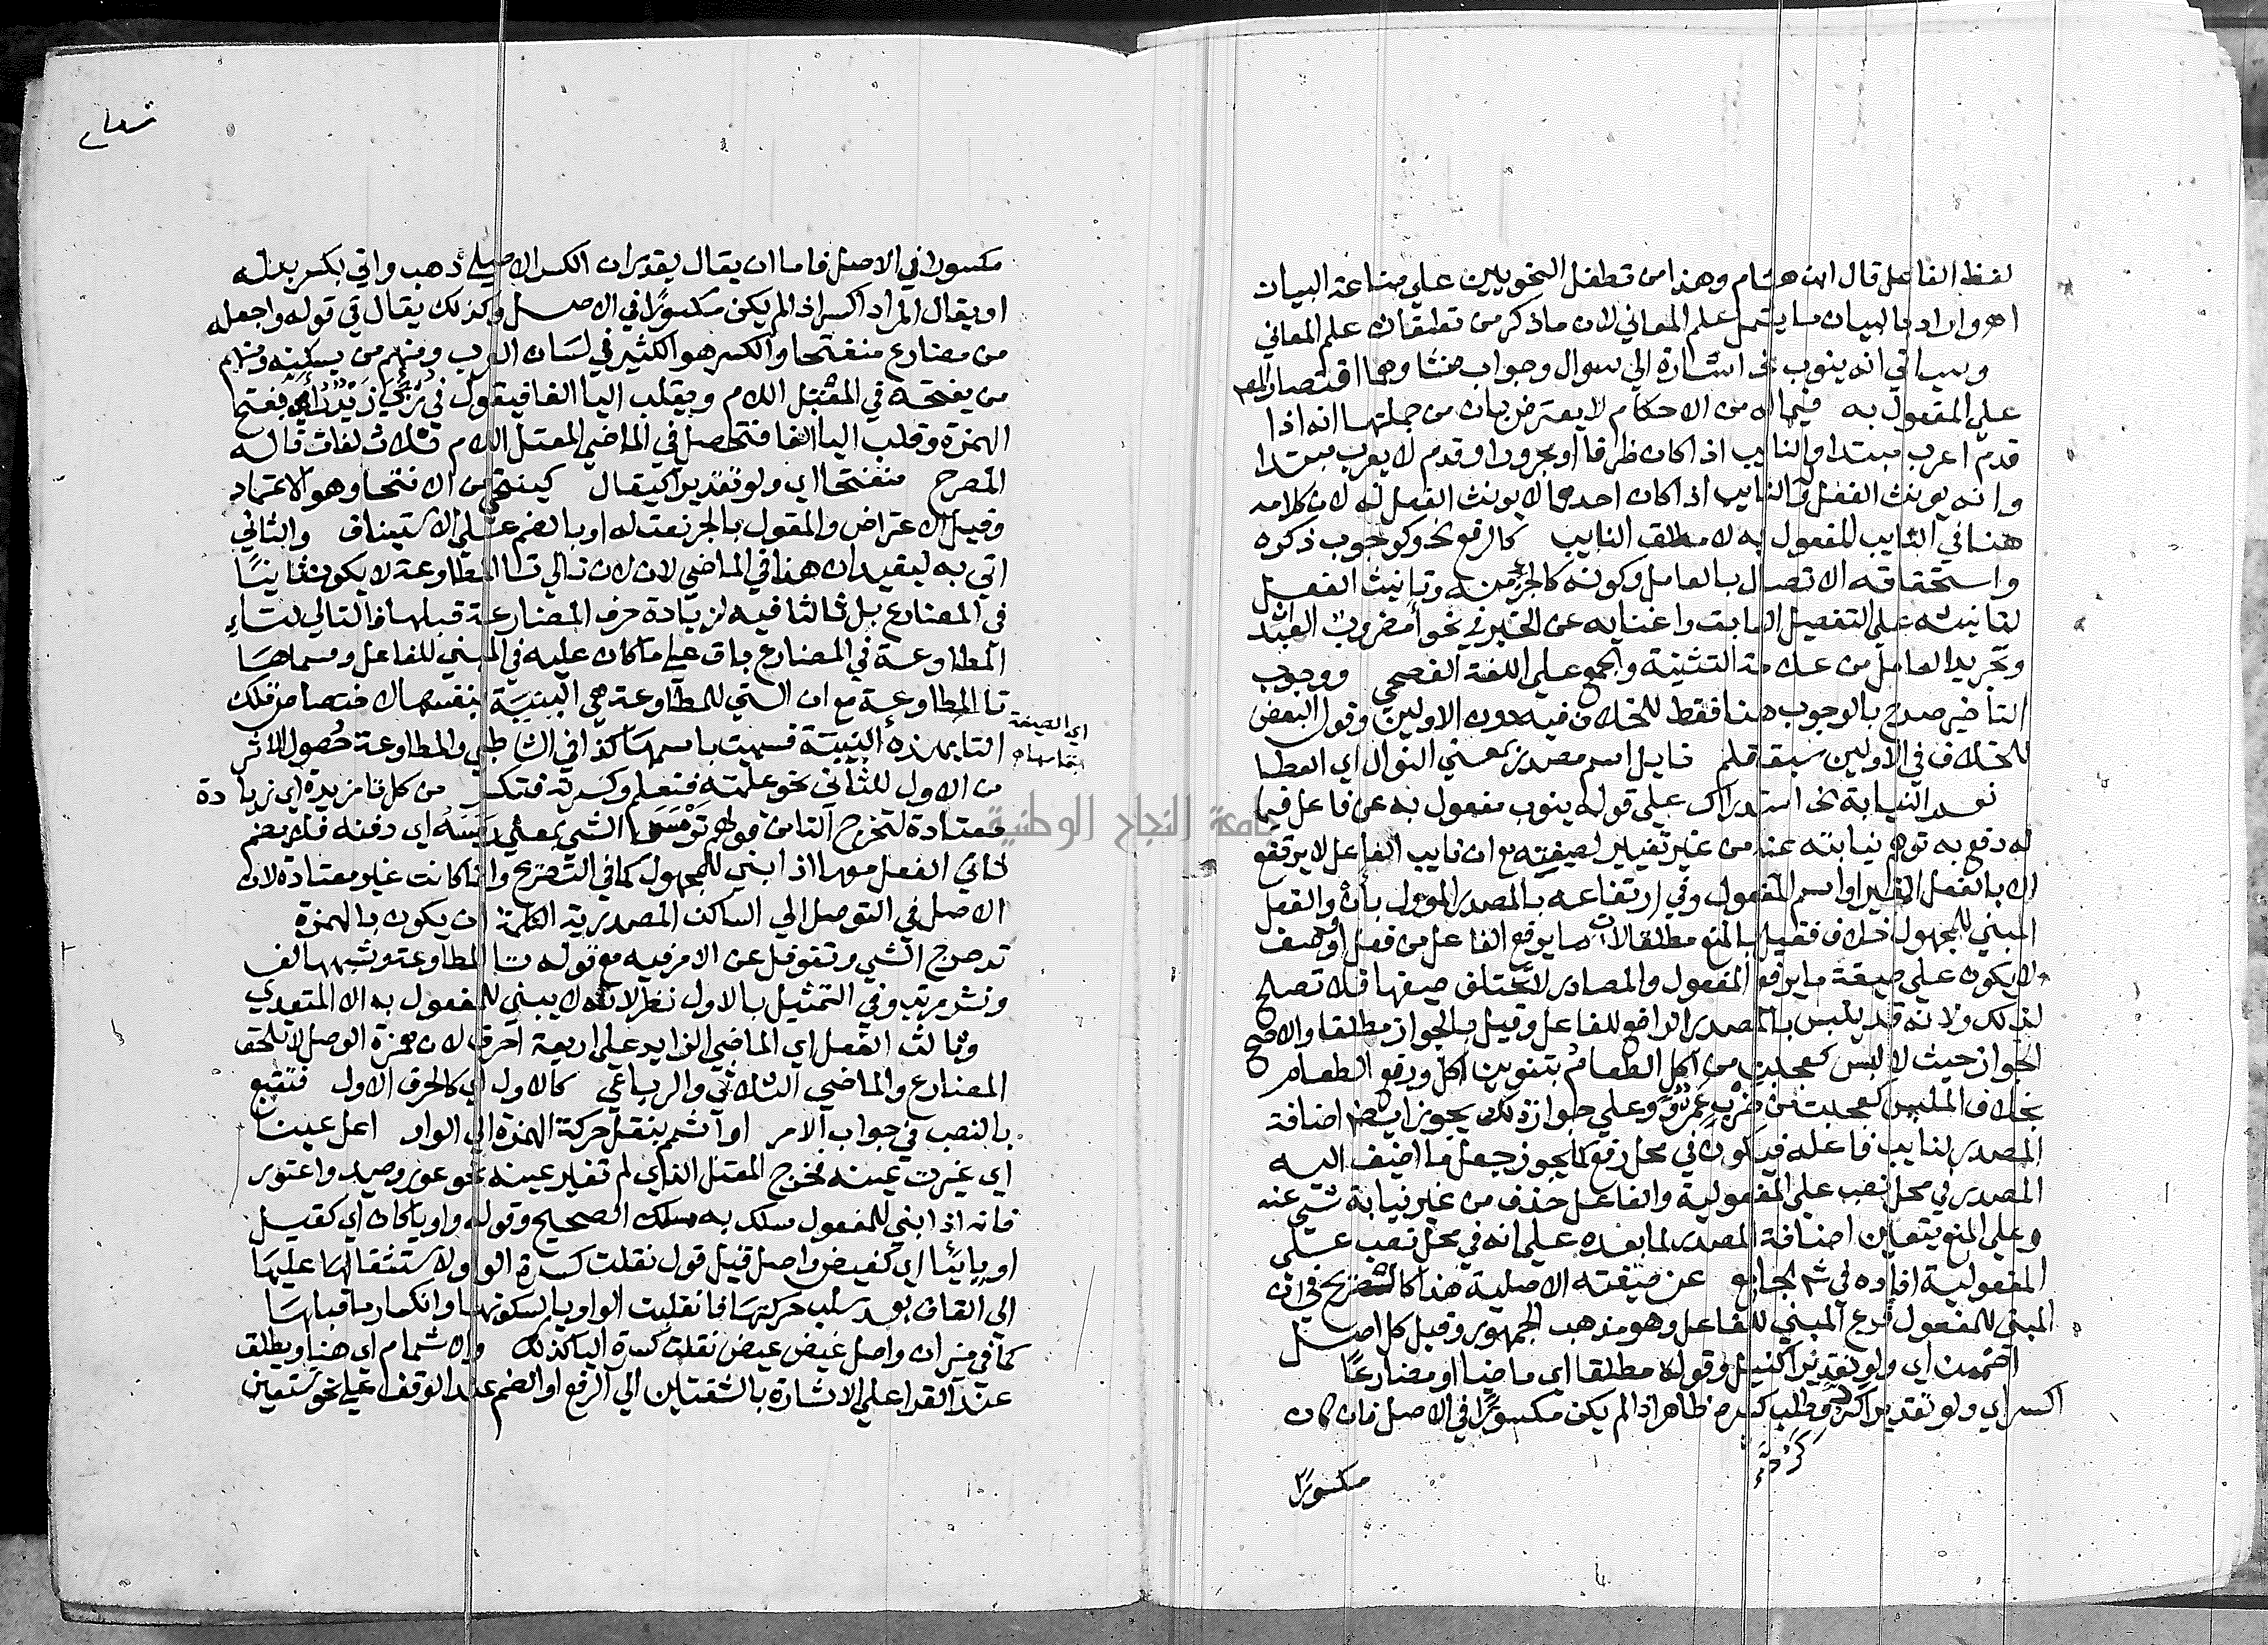 لفظ الفاعل قال ابن هشام وهذا من تطفل النحويين علي صناعة البيان
اهـ واراد بالبيان ما يشمل علم المعاني لان ما ذكر من تعلقات علم المعاني
وسياتي انه ينوب الخ اشارة الي سوال وجواب منشاوهما اقتصار المص
علي المفعول به فيما له من الاحكام لا يعترض بان من جملتها انه اذا
قدم اعرب مبتدا والنايب اذا كان ظرفا او مجرورا وقدم لا يعرب مبتدا
وانه يونث الفعل والنايب اذا كان احدهما لا يونث الفعل له لان كلامه
هنا في النايب المفعول به لا مطلق النايب كالرفع نحو كوجوب ذكره
واستحقاقه الاتصال بالعامل وكونه كالجزء منه وتانيث الفعل
لتانيثه علي التفصيل السابق واغنايه عن الخبر في نحو أمضروب العبد
وتجريد العامل من علامة التثنية والجمع علي اللغة الفصحي ووجوب
التاخير صرح بالوجوب هنا فقط للخلاف فيه دون الاولين وقول البعض
للخلاف في الاولين سبق قلم نايل اسم مصدر بمعني النوال اي العطا
نعم النيابة الخ استدراك علي قوله ينوب مفعول به عن فاعل فيما
له دفع به توهم نيابته عنه من غير تغيير لصيغته مع ان نايب الفاعل لا يرتفع
الا بالفعل المغير او اسم المفعول وفي ارتفاعه بالمصدر المؤول بأن والفعل
المبني للمجهول خلاف فقيل بالمنع مطلقا لان ما يرفع الفاعل من فعل او وصف
لا يكون علي صيغة ما يرفع المفعول والمصادر لا تختلف صيغها فلا تصلح
لذلك ولانه قد يلبس بالمصدر الرافع للفاعل وقيل بالجواز مطلقا والاصح
الجواز حيث لا لبس كعجبت من اكل الطعام بتنوين اكل ورفع الطعام
بخلاف الملبس كعجبت من ضرب عمرو وعلي جوازه ذلك يجوز ايضا اضافة
المصدر لنايب فاعله فيكون في محل رفع كما يجوز جعل ما اضيف اليه
المصدر في محل نصب علي المفعولية والفاعل حذف من غير نيابة شي عنه
وعلي المنع يتعين اضافة المصدر لما بعده علي انه في محل نصب علي
المفعولية افاده في شرح الجامع عن صيغته الاصلية هذا كالتصريح في ان
المبني للمفعول فرع المبني للفاعل وهو مذهب الجمهور وقيل كل اصل
اضممن اي ولو تقديرا كنيل وقوله مطلقا اي ماضيا او مضارعا
اكسر اي ولو تقديرا كرد وطلب كسره ظاهر اذا لم يكن مكسورا في الاصل فان كان
مكسورا
مكسورا في الاصل فاما ان يقال يقدر ان الكسر الاصلي ذهب واتي بكسر بدله
او يقال المراد اكسر اذا لم يكن مكسورا في الاصل وكذلك يقال في قوله واجعله
من مضارع منفتحا والكسر هو الكثير في لسان العرب ومنهم من يسكنه ومنهم
من يفتحه في المعتل اللام ويقلب اليا الفا فيقول في رؤي زيد رأي بفتح
الهمزة وقلب اليا الفا فتحصل في الماضي المعتل اللام ثلاث لغات قاله
المصرح منفتحا اي ولو تقديرا كيقال كينتحي من الانتحا وهو الاعتماد
وقيل الاعتراض والمقول بالجر نعت له او بالضم علي الاستيناف والثاني
اتي به ليفيد ان هذا في الماضي لان لان تالي تا المطاوعة لا يكون ثانيا
في المضارع بل ثالثا فيه لزيادة حرف المضارعة قبلها فالتالي لتاء
المطاوعة في المضارع باق علي ما كان عليه في المبني للفاعل وسماها
تا المطاوعة مع ان التي للمطاوعة هي البنية بنفسها لاختصاص تلك
اي الصيغة بتمامها اه
التا بهذه البنية فسميت باسمها كذا في الشاطبي والمطاوعة حصول الاثر
من الاول للثاني نحو علمته فتعلم وكسرته فتكسر من كل تا مزيدة اي زيادة
معتادة لتخرج التا من قولهم ترمس الشي بمعني رمسه اي دفنه فلا يضم
ثاني الفعل معها اذا بني للمجهول كما في التصريح وانما كانت غير معتادة لان
الاصل في التوصل الي الساكن المصدر به الكلمة ان يكون بالهمزة
تدحرج الشي وتغوفل عن الامر فيه مع قوله تا المطاوعة وشبهها لف
ونشر مرتب وفي التمثيل بالاول نظر لانه لا يبني للمفعول به الا المتعدي
وثالث الفعل اي الماضي الزايد علي اربعة احرف لان همزة الوصل لا تلحق
المضارع والماضي الثلاثي والرباعي كالاول اي كالحرف الاول فتتبع
بالنصب في جواب الامر او اشمم بنقل حركة الهمزة الي الواو اعل عينا
اي غيرت عينه فخرج المعتل الذي لم تغير عينه نحو عور وصيد واعتور
فانه اذا بني للمفعول سلك به مسلك الصحيح وقوله واويا كان اي كقيل
او يايئا اي كغيض واصل قيل قول نقلت كسرة الواو لاستثقالها عليها
الي القاف بعد سلب حركتها فانقلبت الواو يا لسكونها وانكسار ما قبلها
كما في ميزان واصل غيض غيض نقلت كسرة اليا كذلك والاشمام اي هنا ويطلق
عند القرا علي الاشارة بالشفتين الي الرفع او الضم عند الوقف علي نحو نستعين